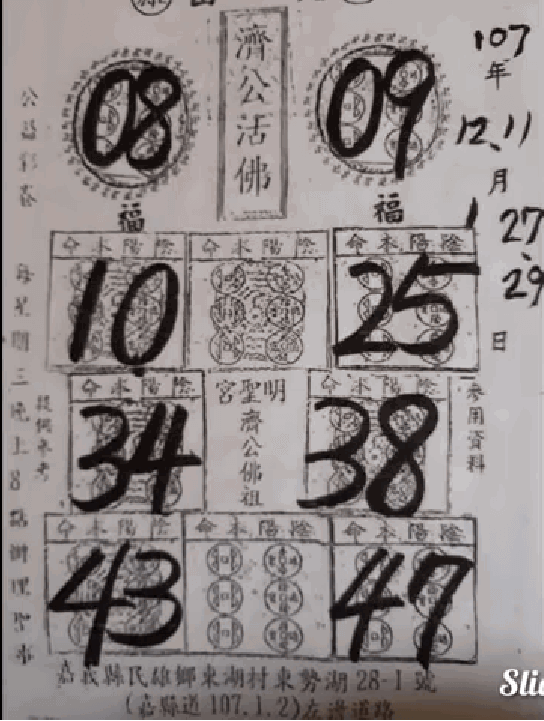 濟公活佛
08
09
107
年
12、11
月
27、
29
日
福
福
命本陽陰
命本陽陰
命本陽陰
10
25
命本陽陰
宮聖明
命本陽陰
34
濟公佛祖
38
參用資料
命本陽陰
命本陽陰
命本陽陰
43
47
公益彩券
每星期三晚上8點辦理聖事
嘉義縣民雄鄉東湖村東勢湖28-1號
(嘉縣道107.1.2)左邊道路
Slid